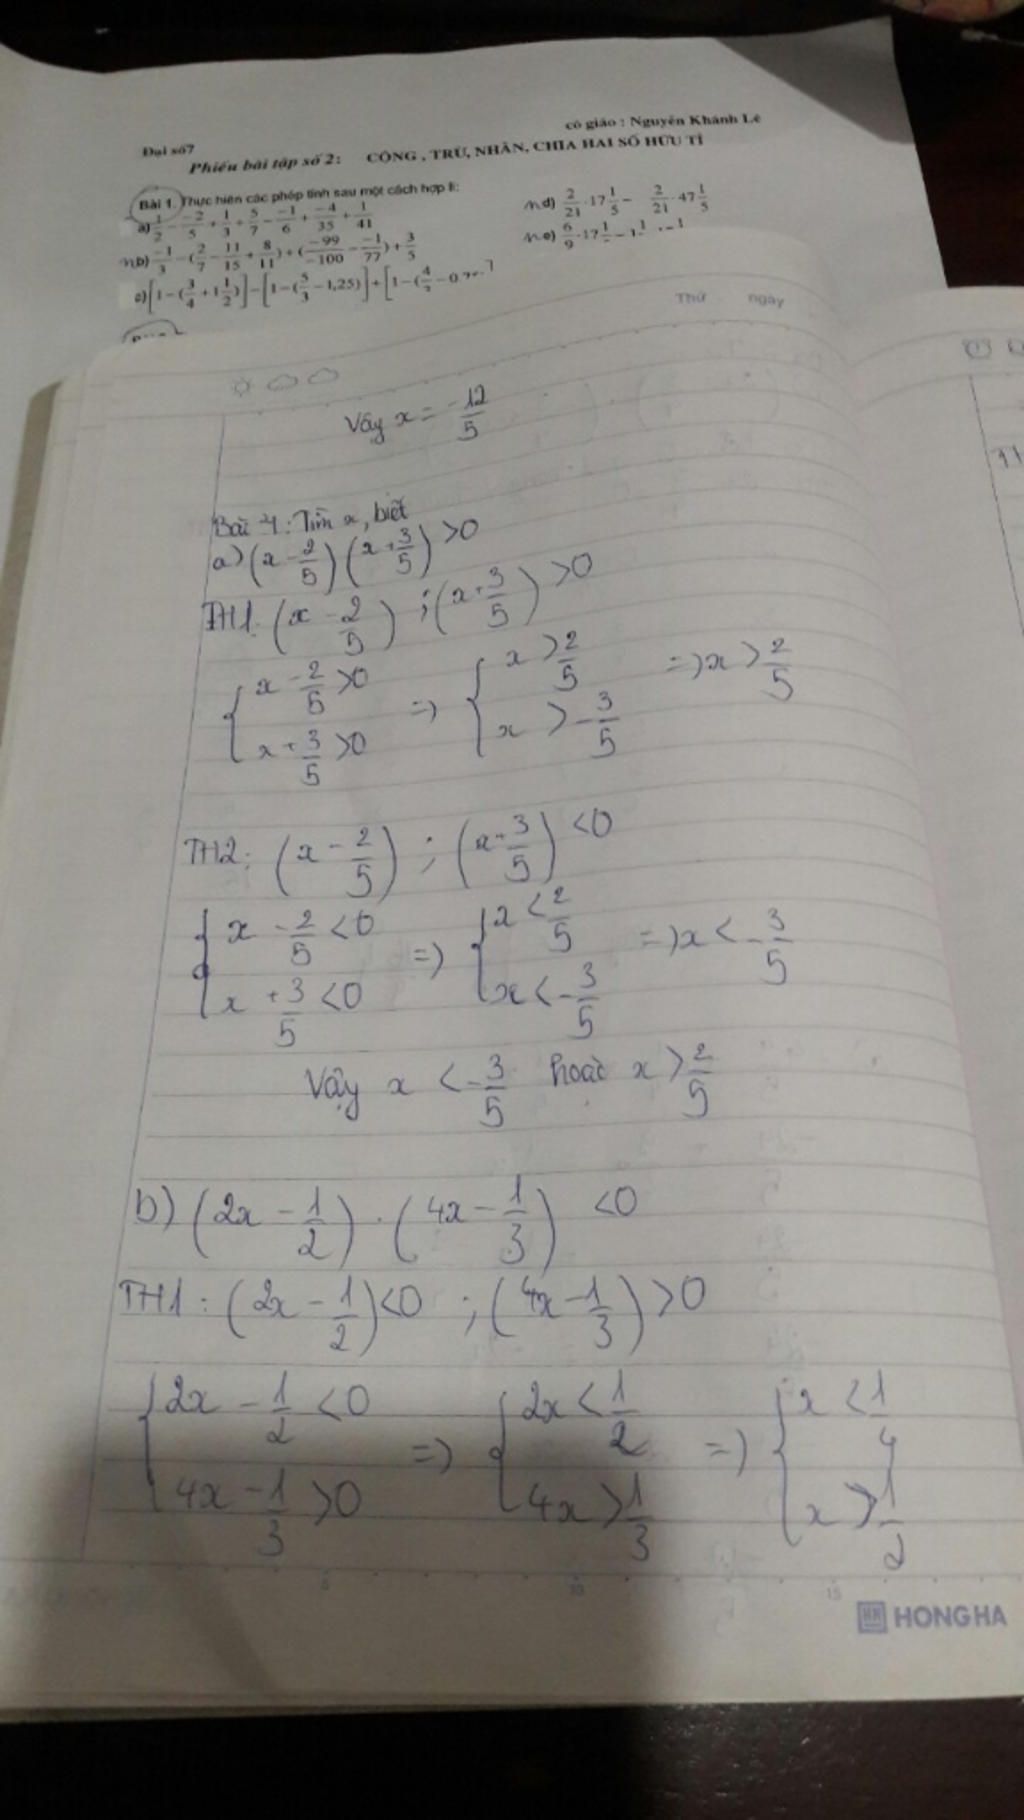 cô giáo : Nguyễn Khánh Lê
Đại số7
Phiếu bài tập số 2: CỘNG , TRỪ, NHÂN, CHIA HAI SỐ HỮU TỈ
Bài 1. Thực hiện các phép tính sau một cách hợp lí:
a) 1/2 - -2/5 + 1/3 + 5/7 - -1/6 + -4/35 + 1/41
d) 2/21 . 17 1/5 - 2/21 . 47 1/5
b) -1/3 - (2/7 - 11/15 + 8/11) + (-99/-100 - -1/77) + 3/5
e) 6/9 . 17 1
c) [1-(3/4 + 1 1/2)] - [1-(5/3 - 1,25)] + [1-(4
Thứ ngày
Vậy x = -12/5
Bài 4: Tìm x, biết
a) (x - 2/5) (x + 3/5) >0
TH1: (x - 2/5) ; (x + 3/5) >0
{ x - 2/5 >0 => { x > 2/5 => x > 2/5
x + 3/5 >0 x > -3/5
TH2: (x - 2/5) ; (x + 3/5) <0
{ x - 2/5 <0 => { x < 2/5 => x < -3/5
x + 3/5 <0 x < -3/5
Vậy x < -3/5 hoặc x > 2/5
b) (2x - 1/2) . (4x - 1/3) <0
TH1: (2x - 1/2) <0 ; (4x - 1/3) >0
{ 2x - 1/2 <0 => { 2x < 1/2 => { x < 1/4
4x - 1/3 >0 4x > 1/3 x > 1/2
5 10 15
HH HONG HA